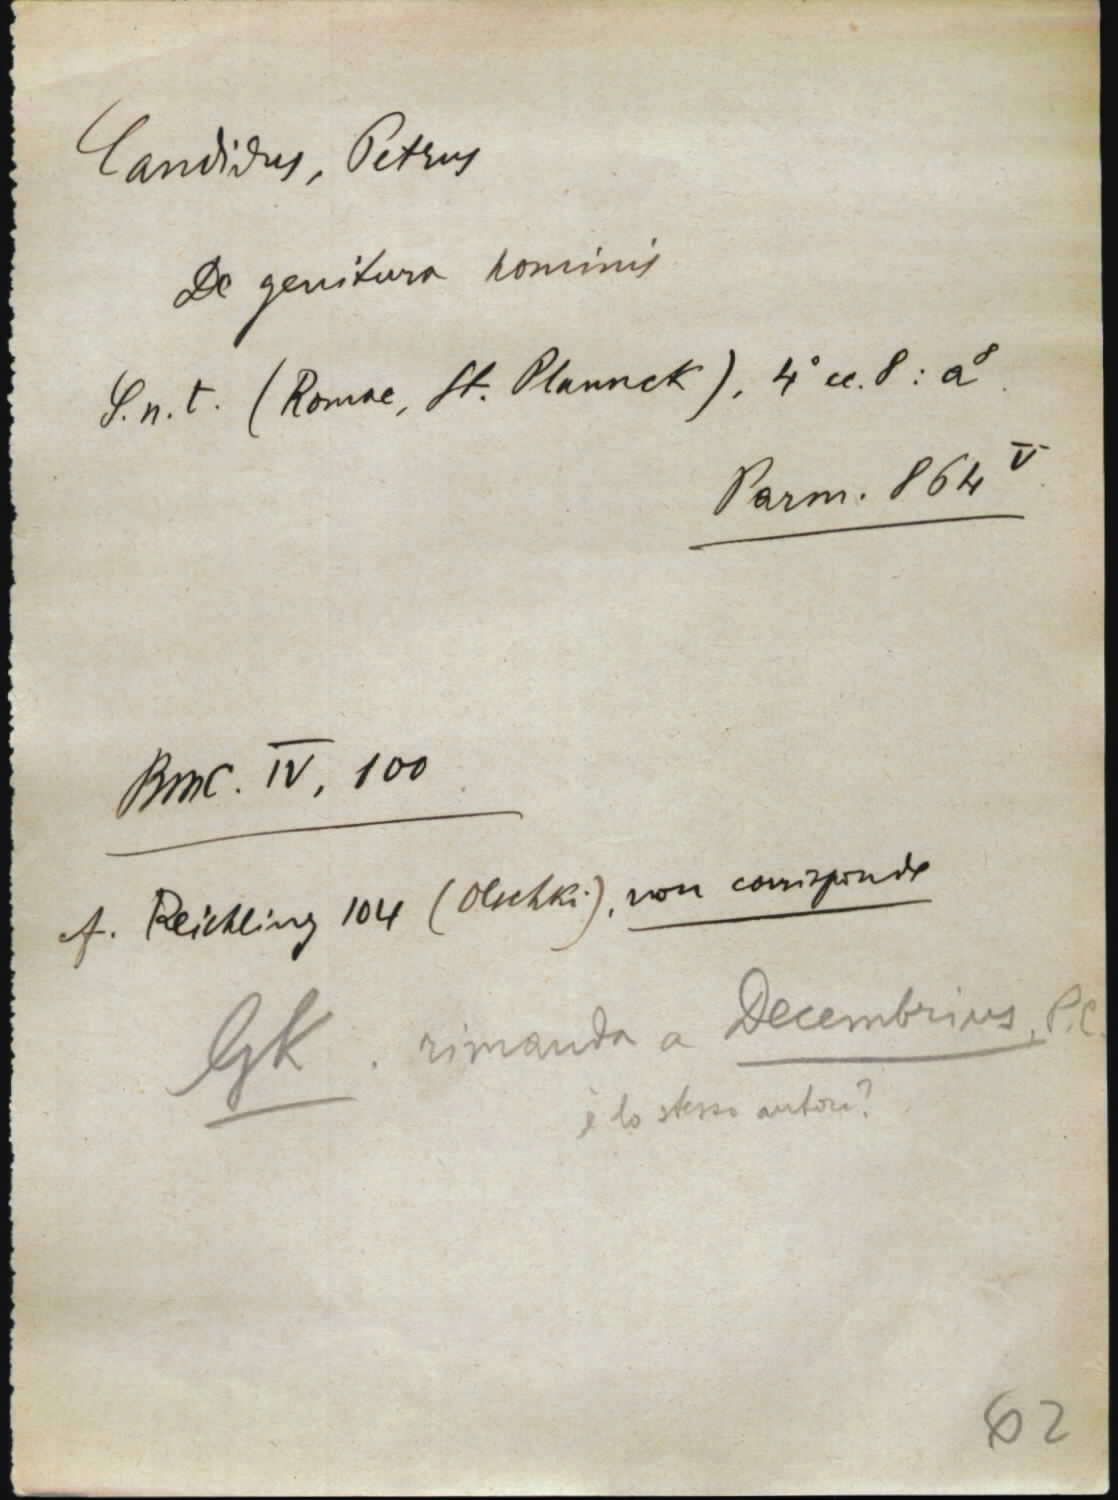 Candidus, Petrus
De genitura hominis
S.n.t. (Romae, St. Plannck), 4° cc. 8 : a⁸.
Parm. 864 V
BMC. IV, 100
cf. Reichling 104 (Olschki), non corrisponde
GK. rimanda a Decembrius, P.C.
è lo stesso autore?
62